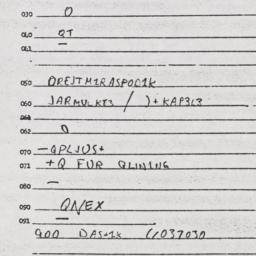 030 0
040 QT
041 —
050 DREJTMIRASPOD1K
060 JARMULKT3 / )+KAP3L3
061
062 0
070 -QPLJUS+
071 +Q FUR QLINING
—
080
090 QN/EX
091 —
900 DAS+1K (/037030